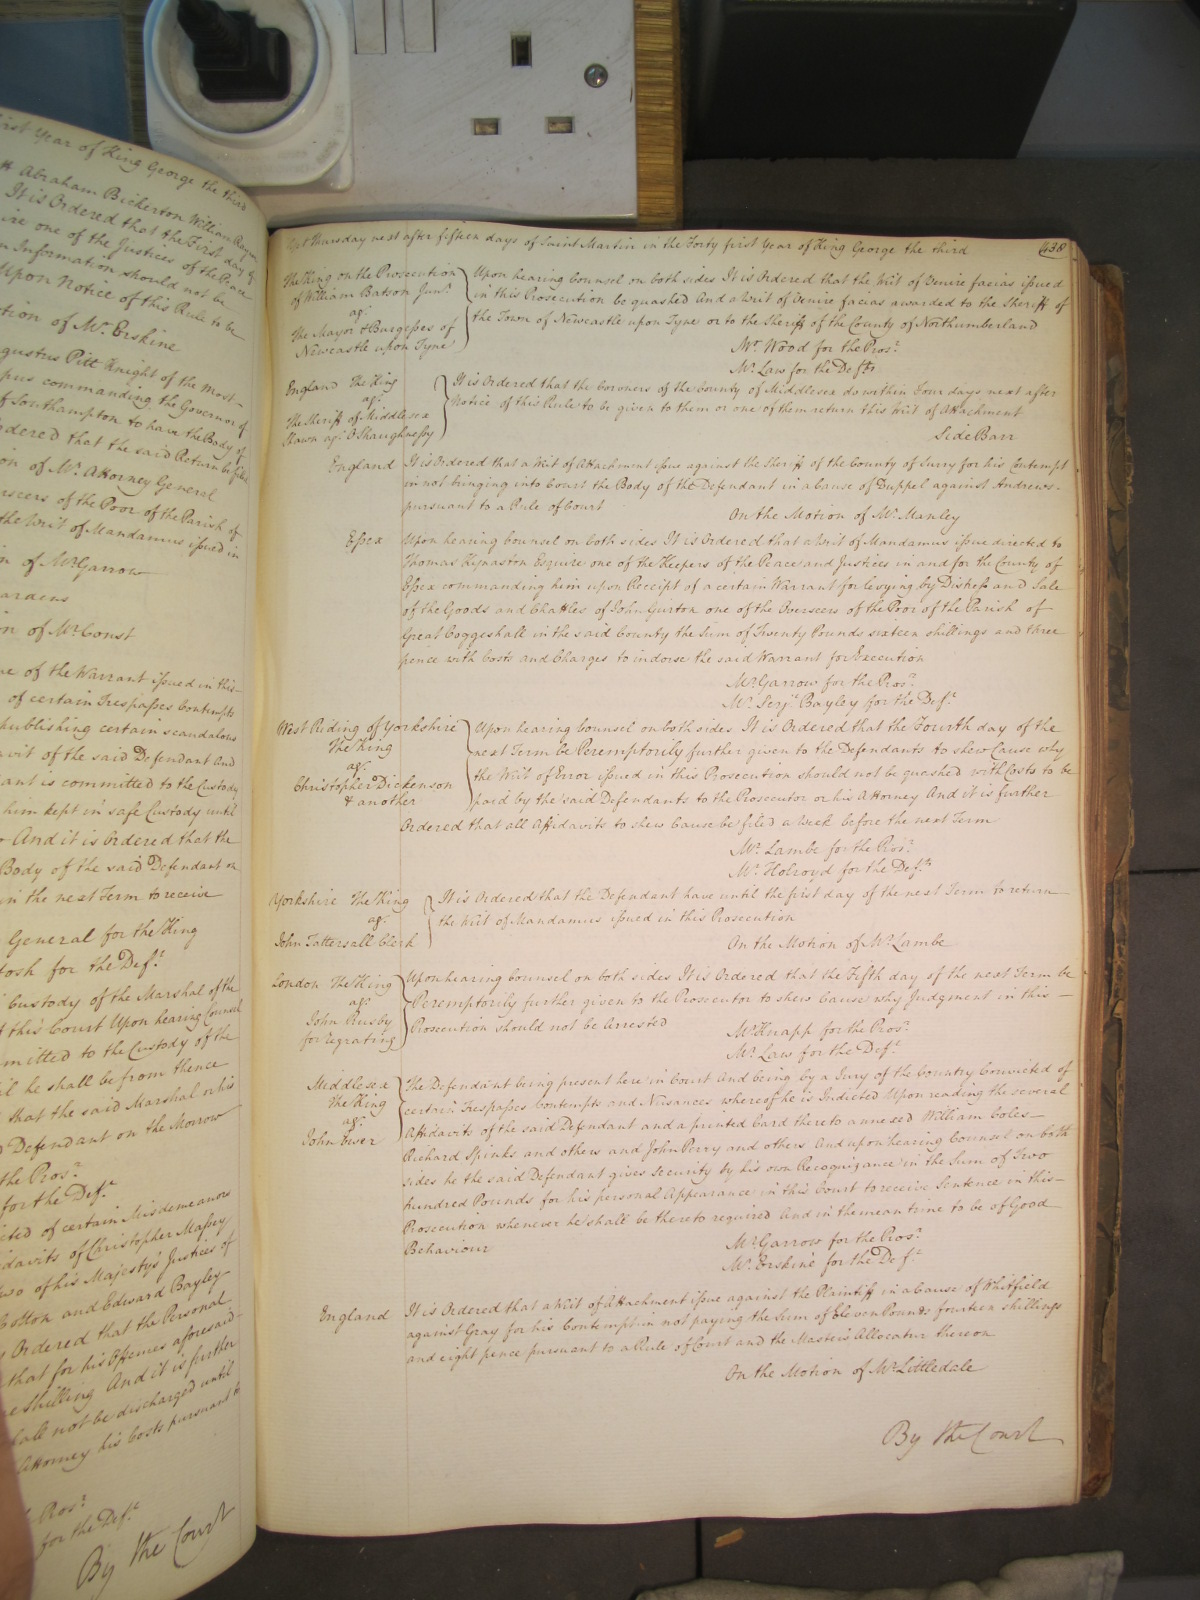 first Year of King George the third
Abraham Bickerton William
It is Ordered that the First day of
one of the Justices of the Peace
Information should not be
Upon Notice of this Rule to be
tion of Mr. Erskine
gustus Pitt Knight of the Most
pus commanding the Governor of
of Southampton to have the Body of
rdered that the said Return be filed
on of Mr. Attorney General
rseers of the Poor of the Parish of
the Writ of Mandamus issued in
n of Mr Garrow
ardens
n of Mr Const
ne of the Warrant issued in this
of certain Trespasses Contempts
publishing certain scandalous
avit of the said Defendant And
ant is committed to the Custody
him kept in safe Custody until
And it is Ordered that the
Body of the said Defendant on
in the next Term to receive
General for the King
tosh for the Deft.
Custody of the Marshal of the
this Court Upon hearing Counsel
mmitted to the Custody of the
il he shall be from thence
that the said Marshal or his
Defendant on the Morrow
the Prosr.
for the Deft.
cted of certain Misdemeanors
idavits of Christopher Massey
two of his Majesty's Justices of
Cotton and Edward Bayley
Ordered that the Personal
that for his Offences aforesaid
e Shilling And it is further
hall not be discharged until
Attorney his Costs pursuant to
Prosr.
for the Deft.
By the Court
Upt Thursday next after fifteen days of Saint Martin in the Forty first Year of King George the third 438
The King on the Prosecution of William Batson Junr.
agt.
The Mayor & Burgesses of Newcastle upon Tyne
Upon hearing Counsel on both sides It is Ordered that the Writ of Venire facias issued
in this Prosecution be quashed And a Writ of Venire facias awarded to the Sheriff of
the Town of Newcastle upon Tyne or to the Sheriff of the County of Northumberland
Mr. Wood for the Prosr.
Mr. Law for the Defts
England The King
agt.
The Sheriff of Middlesex
Shawn agt. O Shaughnessy
It is Ordered that the Coroners of the County of Middlesex do within Four days next after
Notice of this Rule to be given to them or one of them return this Writ of Attachment
Side Barr
England It is Ordered that a Writ of Attachment issue against the Sheriff of the County of Surry for his Contempt
in not bringing into Court the Body of the Defendant in a Cause of Duppel against Andrews
pursuant to a Rule of Court
On the Motion of Mr. Manley
Essex Upon hearing Counsel on both sides It is Ordered that a Writ of Mandamus issue directed to
Thomas Kynaston Esquire one of the Keepers of the Peace and Justices in and for the County of
Essex commanding him upon Receipt of a certain Warrant for levying by Distress and Sale
of the Goods and Chattles of John Gurton one of the Overseers of the Poor of the Parish of
Great Coggeshall in the said County the Sum of Twenty Pounds sixteen shillings and three
pence with Costs and Charges to indorse the said Warrant for Execution
Mr Garrow for the Prosr.
Mr. Serjt. Bayley for the Deft.
West Riding of Yorkshire
The King
agt.
Christopher Dickenson
& another
Upon hearing Counsel on both sides It is Ordered that the Fourth day of the
next Term be Peremptorily further given to the Defendants to shew Cause why
the Writ of Error issued in this Prosecution should not be quashed with Costs to be
paid by the said Defendants to the Prosecutor or his Attorney And it is further
Ordered that all Affidavits to shew Cause be filed a Week before the next Term
Mr. Lambe for the Prosr.
Mr. Holroyd for the Defts.
Yorkshire The King
agt.
John Tattersall Clerk
It is Ordered that the Defendant have until the first day of the next Term to return
the Writ of Mandamus issued in this Prosecution
On the Motion of Mr. Lambe
London The King
agt.
John Rusby
for regrating
Upon hearing Counsel on both sides It is Ordered that the Fifth day of the next Term be
Peremptorily further given to the Prosecutor to shew Cause why Judgment in this
Prosecution should not be Arrested
Mr. Knapp for the Prosr.
Mr. Law for the Deft.
Middlesex
The King
agt.
John Ewer
The Defendant being present here in Court And being by a Jury of the Country Convicted of
certain Trespasses Contempts and Nusances whereof he is Indicted Upon reading the several
Affidavits of the said Defendant and a printed Card thereto annexed William Coles
Richard Spinks and others and John Perry and others And upon hearing Counsel on both
sides he the said Defendant gives security by his own Recognizance in the Sum of Two
hundred Pounds for his personal Appearance in this Court to receive Sentence in this
Prosecution whenever he shall be thereto required And in the mean time to be of Good
Behaviour
Mr. Garrow for the Prosr.
Mr. Erskine for the Deft.
England It is Ordered that a Writ of Attachment issue against the Plaintiff in a Cause of Whitfield
against Gray for his Contempt in not paying the Sum of Eleven Pounds fourteen shillings
and eight pence pursuant to a Rule of Court and the Masters Allocatur thereon
On the Motion of Mr. Littledale
By the Court